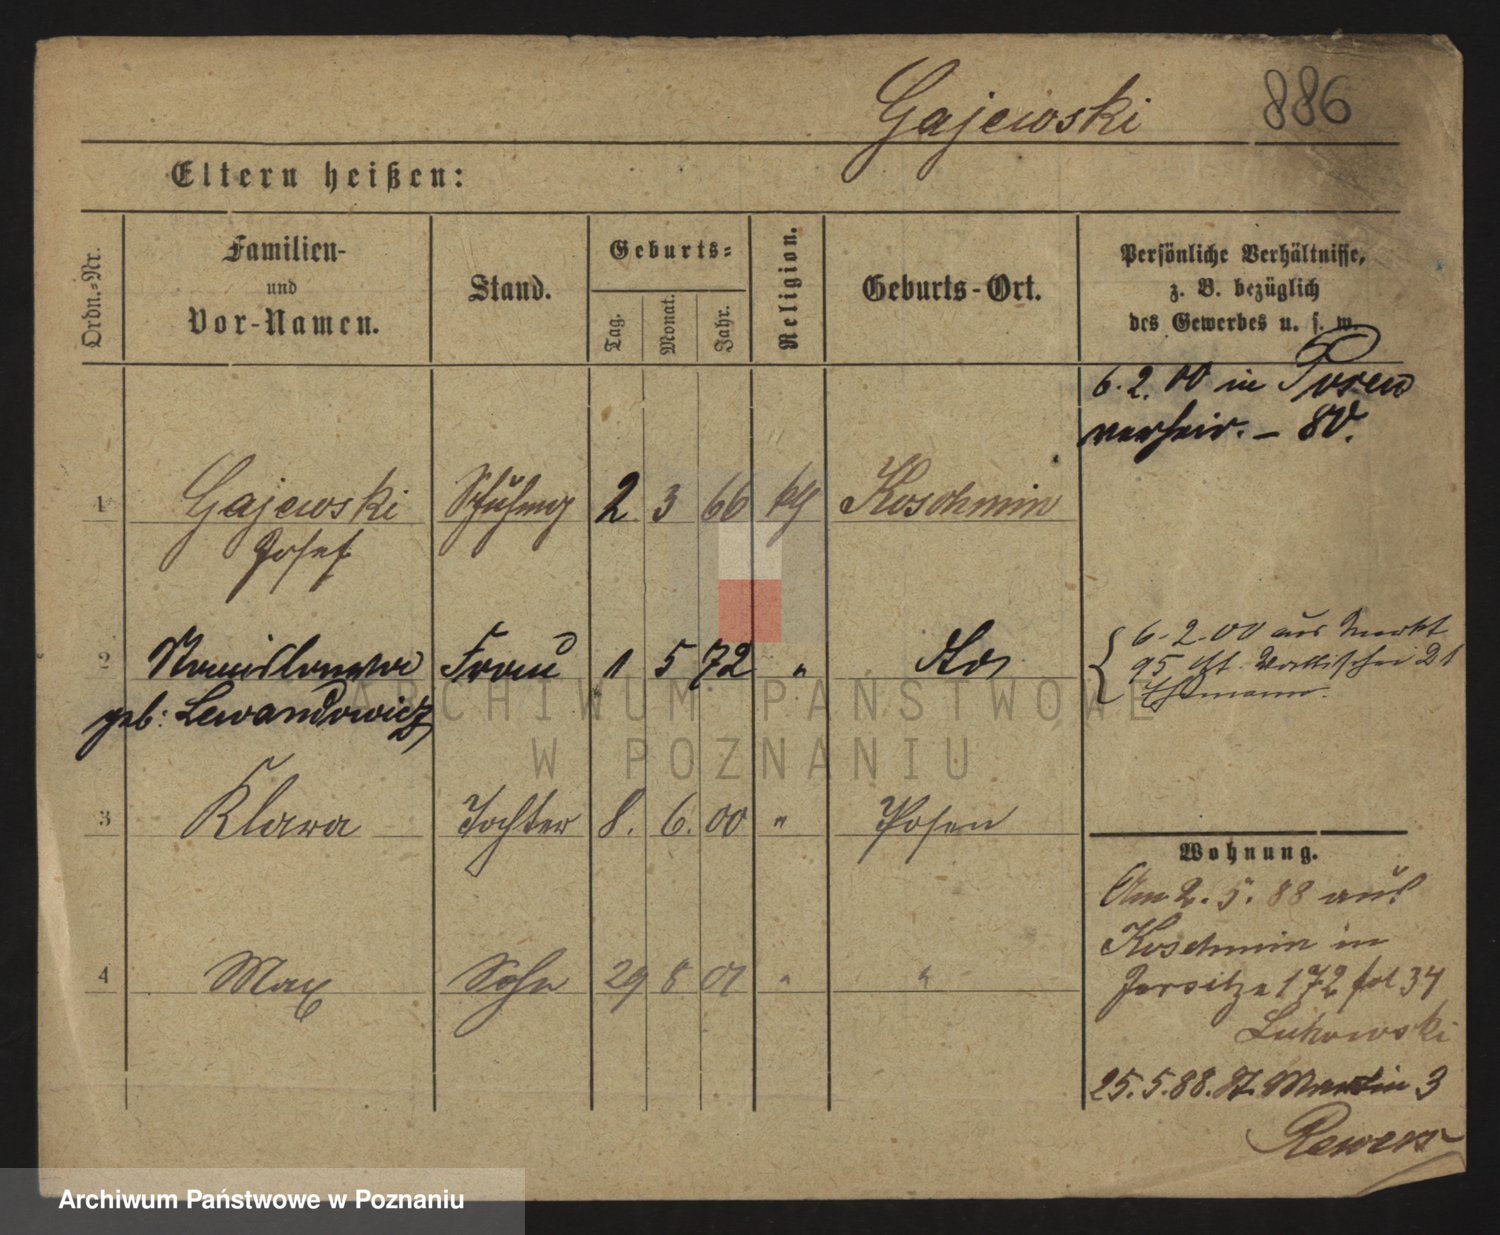 Gajewski 886
Eltern heißen:
Ordn.-Nr.
Familien-
und
Vor-Namen.
Stand.
Geburts-
Tag.
Monat.
Jahr.
Religion.
Geburts-Ort.
Persönliche Verhältnisse,
z. B. bezüglich
des Gewerbes u. s. w.
6. 2. 00 in Posen
verheir. – 80.
1 Gajewski 2 3 66 kth Koschmin
Josef
2 Frau 1 5 72 "
geb: Lewandowicz
6-2-00 aus Markt
95
Ehemann.
3 Klara Tochter 8. 6. 00 " Posen
Wohnung.
Am 2. 5. 88 aus
Koschmin in
4 Max Sohn 29 8 01 " "
Jersitze 172 fol 34
Lukowski
25. 5. 88. St. Martin 3
ARCHIWUM PAŃSTWOWE
W POZNANIU
Archiwum Państwowe w Poznaniu